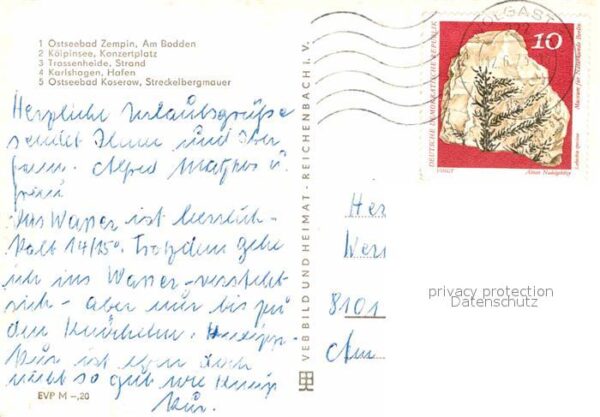 1 Ostseebad Zempin, Am Bodden
2 Kölpinsee, Konzertplatz
3 Trassenheide, Strand
4 Karlshagen, Hafen
5 Ostseebad Koserow, Streckelbergmauer
Herzliche Urlaubsgrüße
sendet Ihnen und Ihrer
Alfred u.
Frau
Das Wasser ist herrlich-
kalt 14/15°. Trotzdem gehe
ich ins Wasser - versteht
sich - aber nur bis zu
den Knöcheln.
kur ist eben doch
nicht so gut wie Kneipp
kur.
EVP M -,20
VEB BILD UND HEIMAT · REICHENBACH I. V.
WOLGAST
10
DEUTSCHE DEMOKRATISCHE REPUBLIK
Museum für Naturkunde Berlin
Lebachia speciosa
VOIGT
Her
8101
privacy protection
Datenschutz